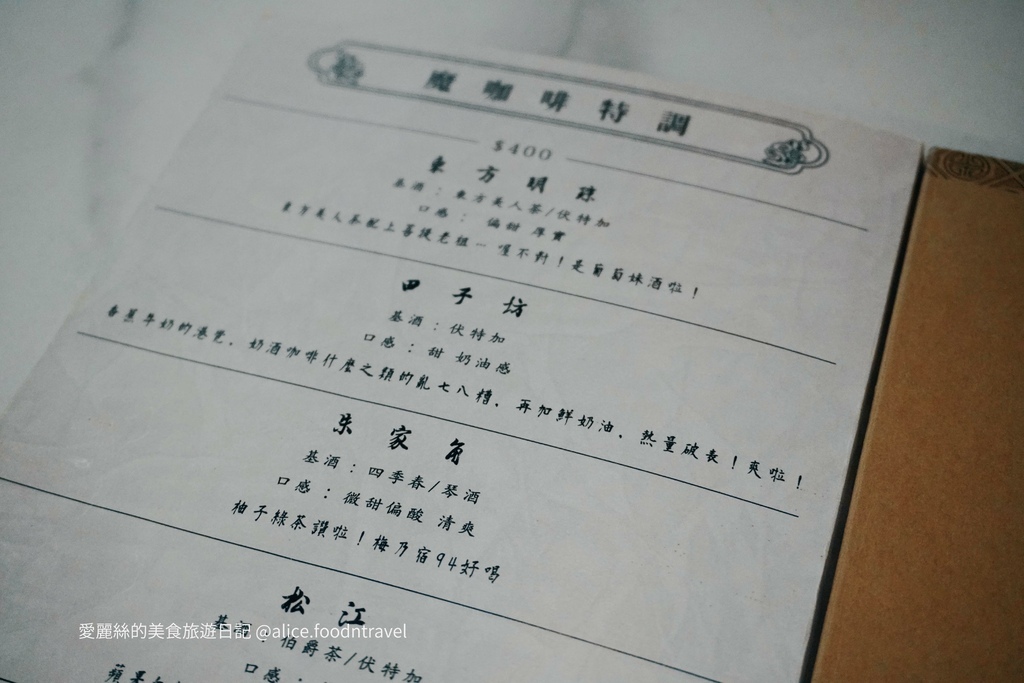 魔咖啡特調
$400
東方明珠
基酒：東方美人茶/伏特加
口感： 偏甜 厚實
東方美人茶配上菩提老祖－喔不對！是葡萄妹酒啦！
田子坊
基酒：伏特加
口感：甜 奶油感
香蕉牛奶的港覺，奶酒咖啡什麼之類的亂七八糟，再加鮮奶油，熱量破表！爽啦！
朱家角
基酒：四季春/琴酒
口感：微甜偏酸 清爽
柚子綠茶讚啦！梅乃宿94好喝
松江
基酒：伯爵茶/伏特加
口感：
蘋果
愛麗絲的美食旅遊日記 @alice.foodntravel